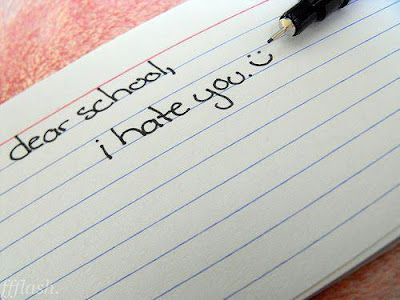 dear school,
i hate you.:)
ffflash.